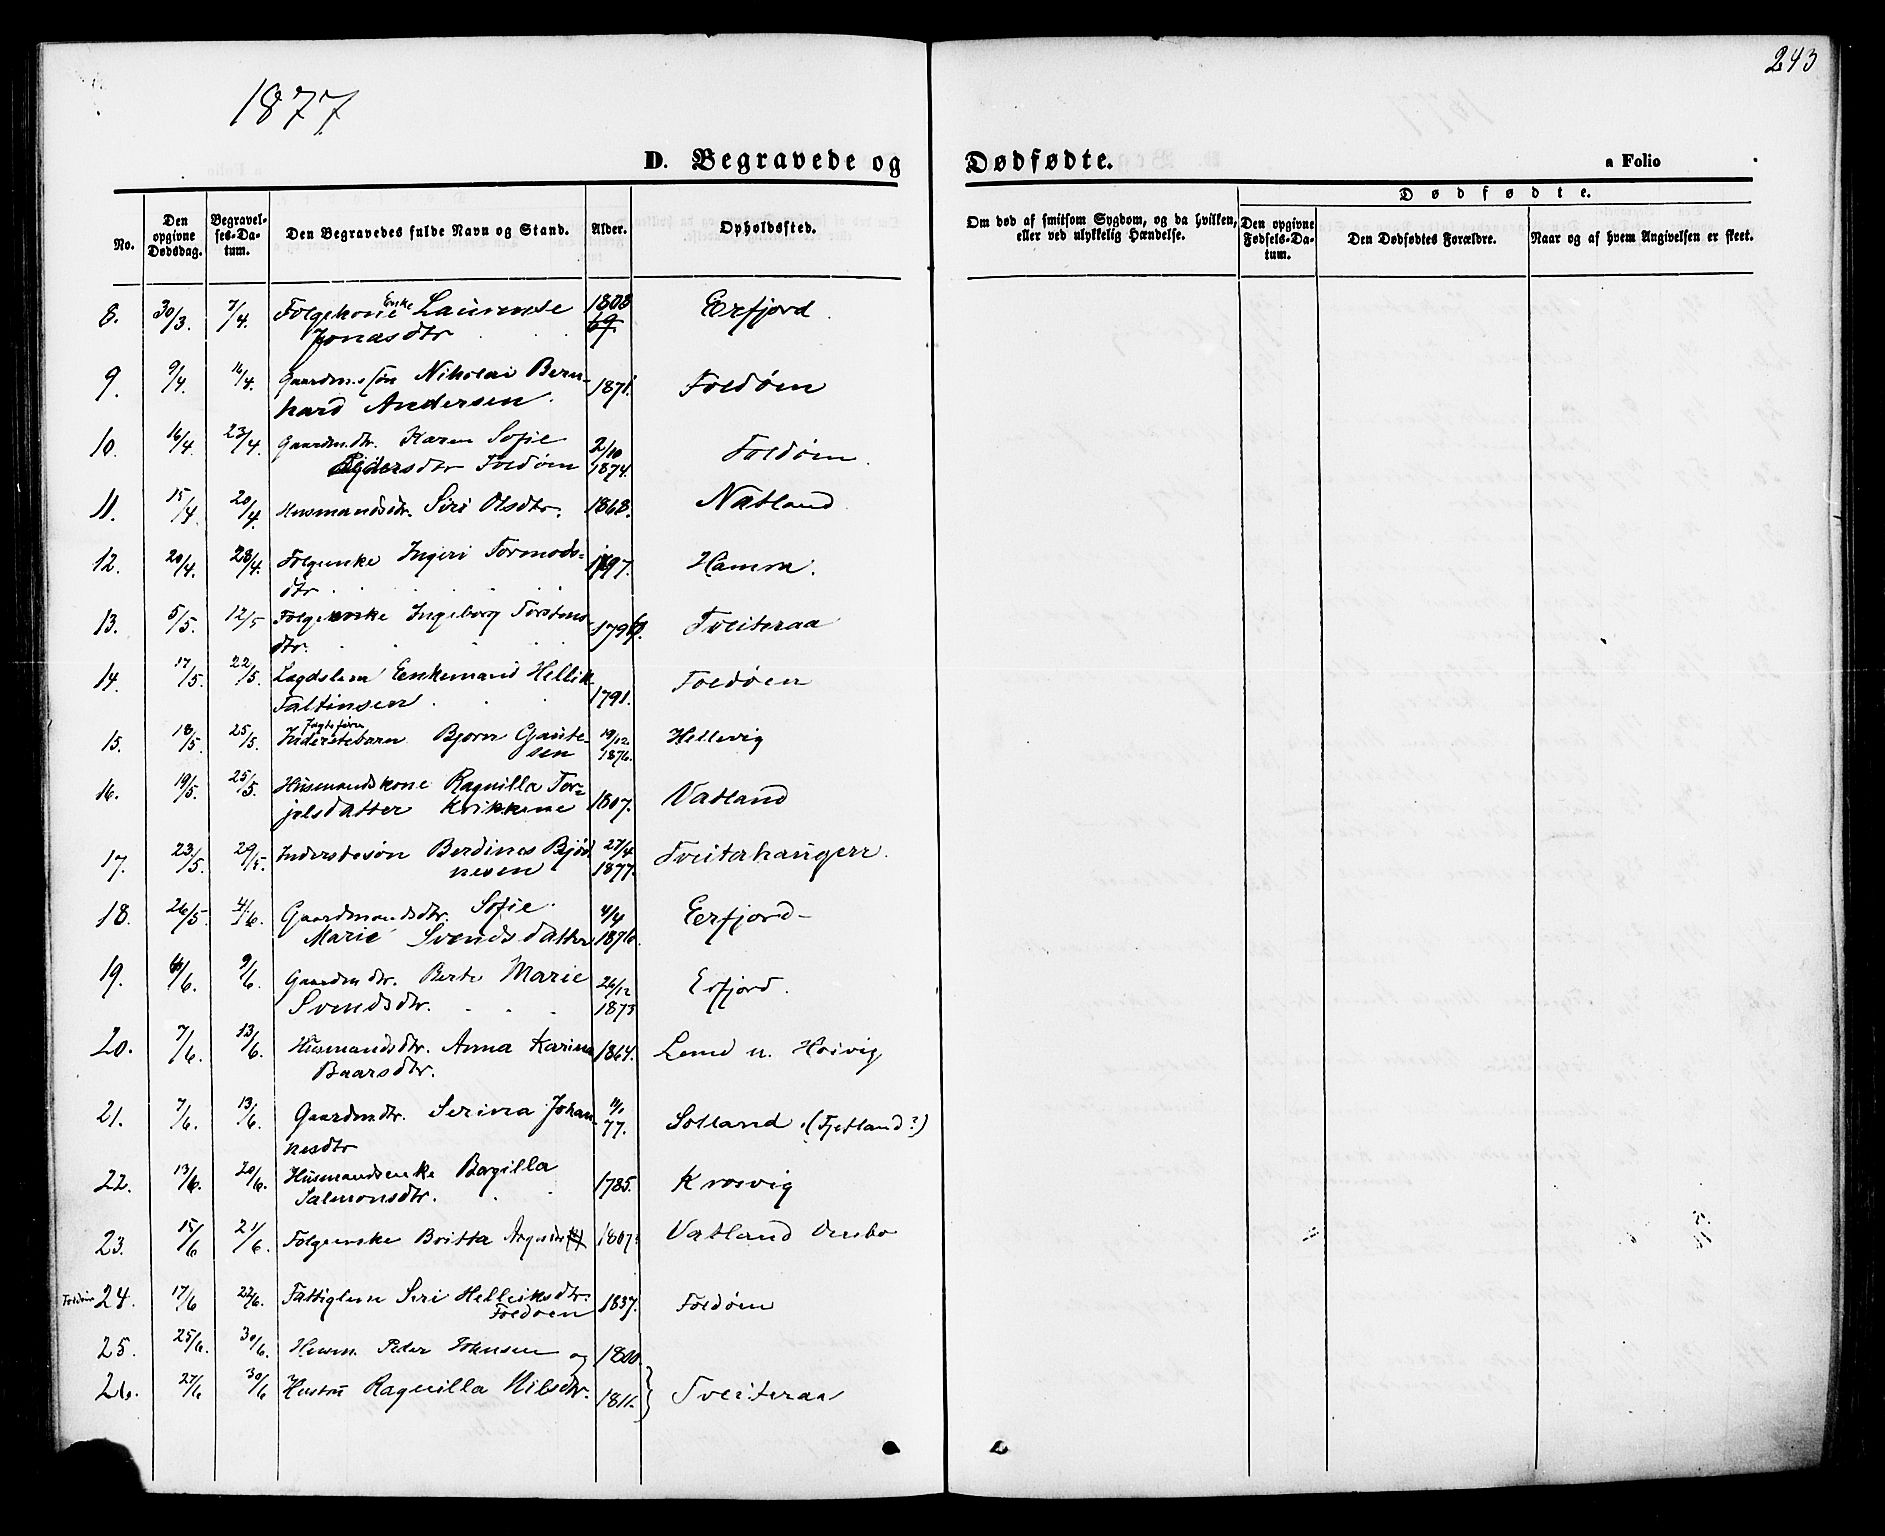 1877
243
D. Begravede og Dødfødte.
a Folio
No.
Den opgivne Dødsdag.
Begravelses-Datum.
Den Begravedes fulde Navn og Stand.
Alder.
Opholdssted.
Om død af smitsom Sygdom, og da hvilken, eller ved ulykkelig Hændelse.
Dødfødte.
Den opgivne Fødsels-Datum.
Den Dødfødtes Forældre.
Naar og af hvem Angivelsen er skeet.
8. 30/3. 7/4. Folgekone Enke Laurense 1808 Eerfjord.
Jonasdtr 69.
9. 9/4. 16/4. Gaardm.søn Nikolai Bern- 1871. Foldøen
hard Andersen.
10. 16/4 23/4. Gaardm.dtr. Karen Sofie 2/10 Foldøen.
Foldøen 1874.
11. 15/4. 20/4 Husmandsdtr. Siri Olsdtr. 1868. Natland
12. 20/4. 28/4. Folgeenke Ingeri Tormods- 1797. Hamra.
dtr.
13. 5/5. 12/5 Folgeenke Ingeborg Torstens- Tveiteraa
dtr.
14. 17/5. 22/5. Lægdslem Enkemand Hellik Foldøen
Faltinsen 1791.
15. 18/5. 25/5. Inderstebarn Bjørn Gaute- 19/12 Hellevig
sen 1876.
16. 19/5. 25/5. Husmandskone Ragnilla Tor- 1807. Vatland
jelsdatter Kvikkene
17. 23/5. 29/5. Inderstesøn Berdines Bjød 27/4 Tveiterhaugen.
nesen 1877.
18. 26/5. 4/6. Gaardmandsdtr. Sofie 4/4 Eerfjord
Marie Svendsdatter 1876.
19. 4/6. 9/6. Gaardm.dtr. Berte Marie 26/12 Erfjord.
Svendsdtr. 1873
20. 7/6. 13/6. Husmandsdtr. Anna Karina 1864. Lund u. Hoivig
Baarsdtr.
21. 7/6. 13/6. Gaardmdtr. Serina Johan- 11/1 77. Sotland (Fjetland?)
nesdtr
22. 13/6. 20/6. Husmandsenke Bagilla 1785. Krosvig
Salmonsdtr.
23. 15/6 21/6. Folgeenke Britta 1807. Vatland
Foldøen 24. 17/6 22/6. Fattiglem Seri Helliksdtr. 1837. Foldøen
Foldøen
25. 25/6. 30/6. Husm. Peder Johnsen og 1800.
26. 27/6 30/6 Hustru Ragnilla Nilsdtr. 1811. Tveiteraa